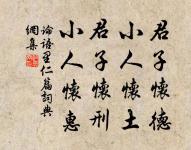 君子懷德
小人懷土
君子懷刑
小人懷惠
論語里仁篇詞典
網集